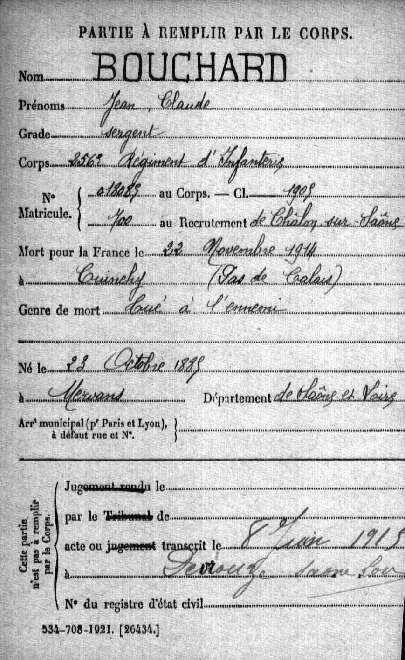 PARTIE À REMPLIR PAR LE CORPS.
Nom BOUCHARD
Prénoms Jean, Claude
Grade sergent
Corps 256e Régiment d'Infanterie
Nº Matricule. { 018085 au Corps. — Cl. 1905
700 au Recrutement de Châlon sur Saône
Mort pour la France le 22 Novembre 1914
à Cuinchy (Pas de Calais)
Genre de mort tué à l'ennemi
Né le 23 Octobre 1885
à Mervans Département de Saône et Loire
Arrt municipal (pr Paris et Lyon), à défaut rue et Nº. }
Cette partie n'est pas à remplir par le Corps.
Jugement rendu le
par le Tribunal de
acte ou jugement transcrit le 8 Juin 1915
à Devrouze Saone Loire
Nº du registre d'état civil
534-708-1921. [26434.]